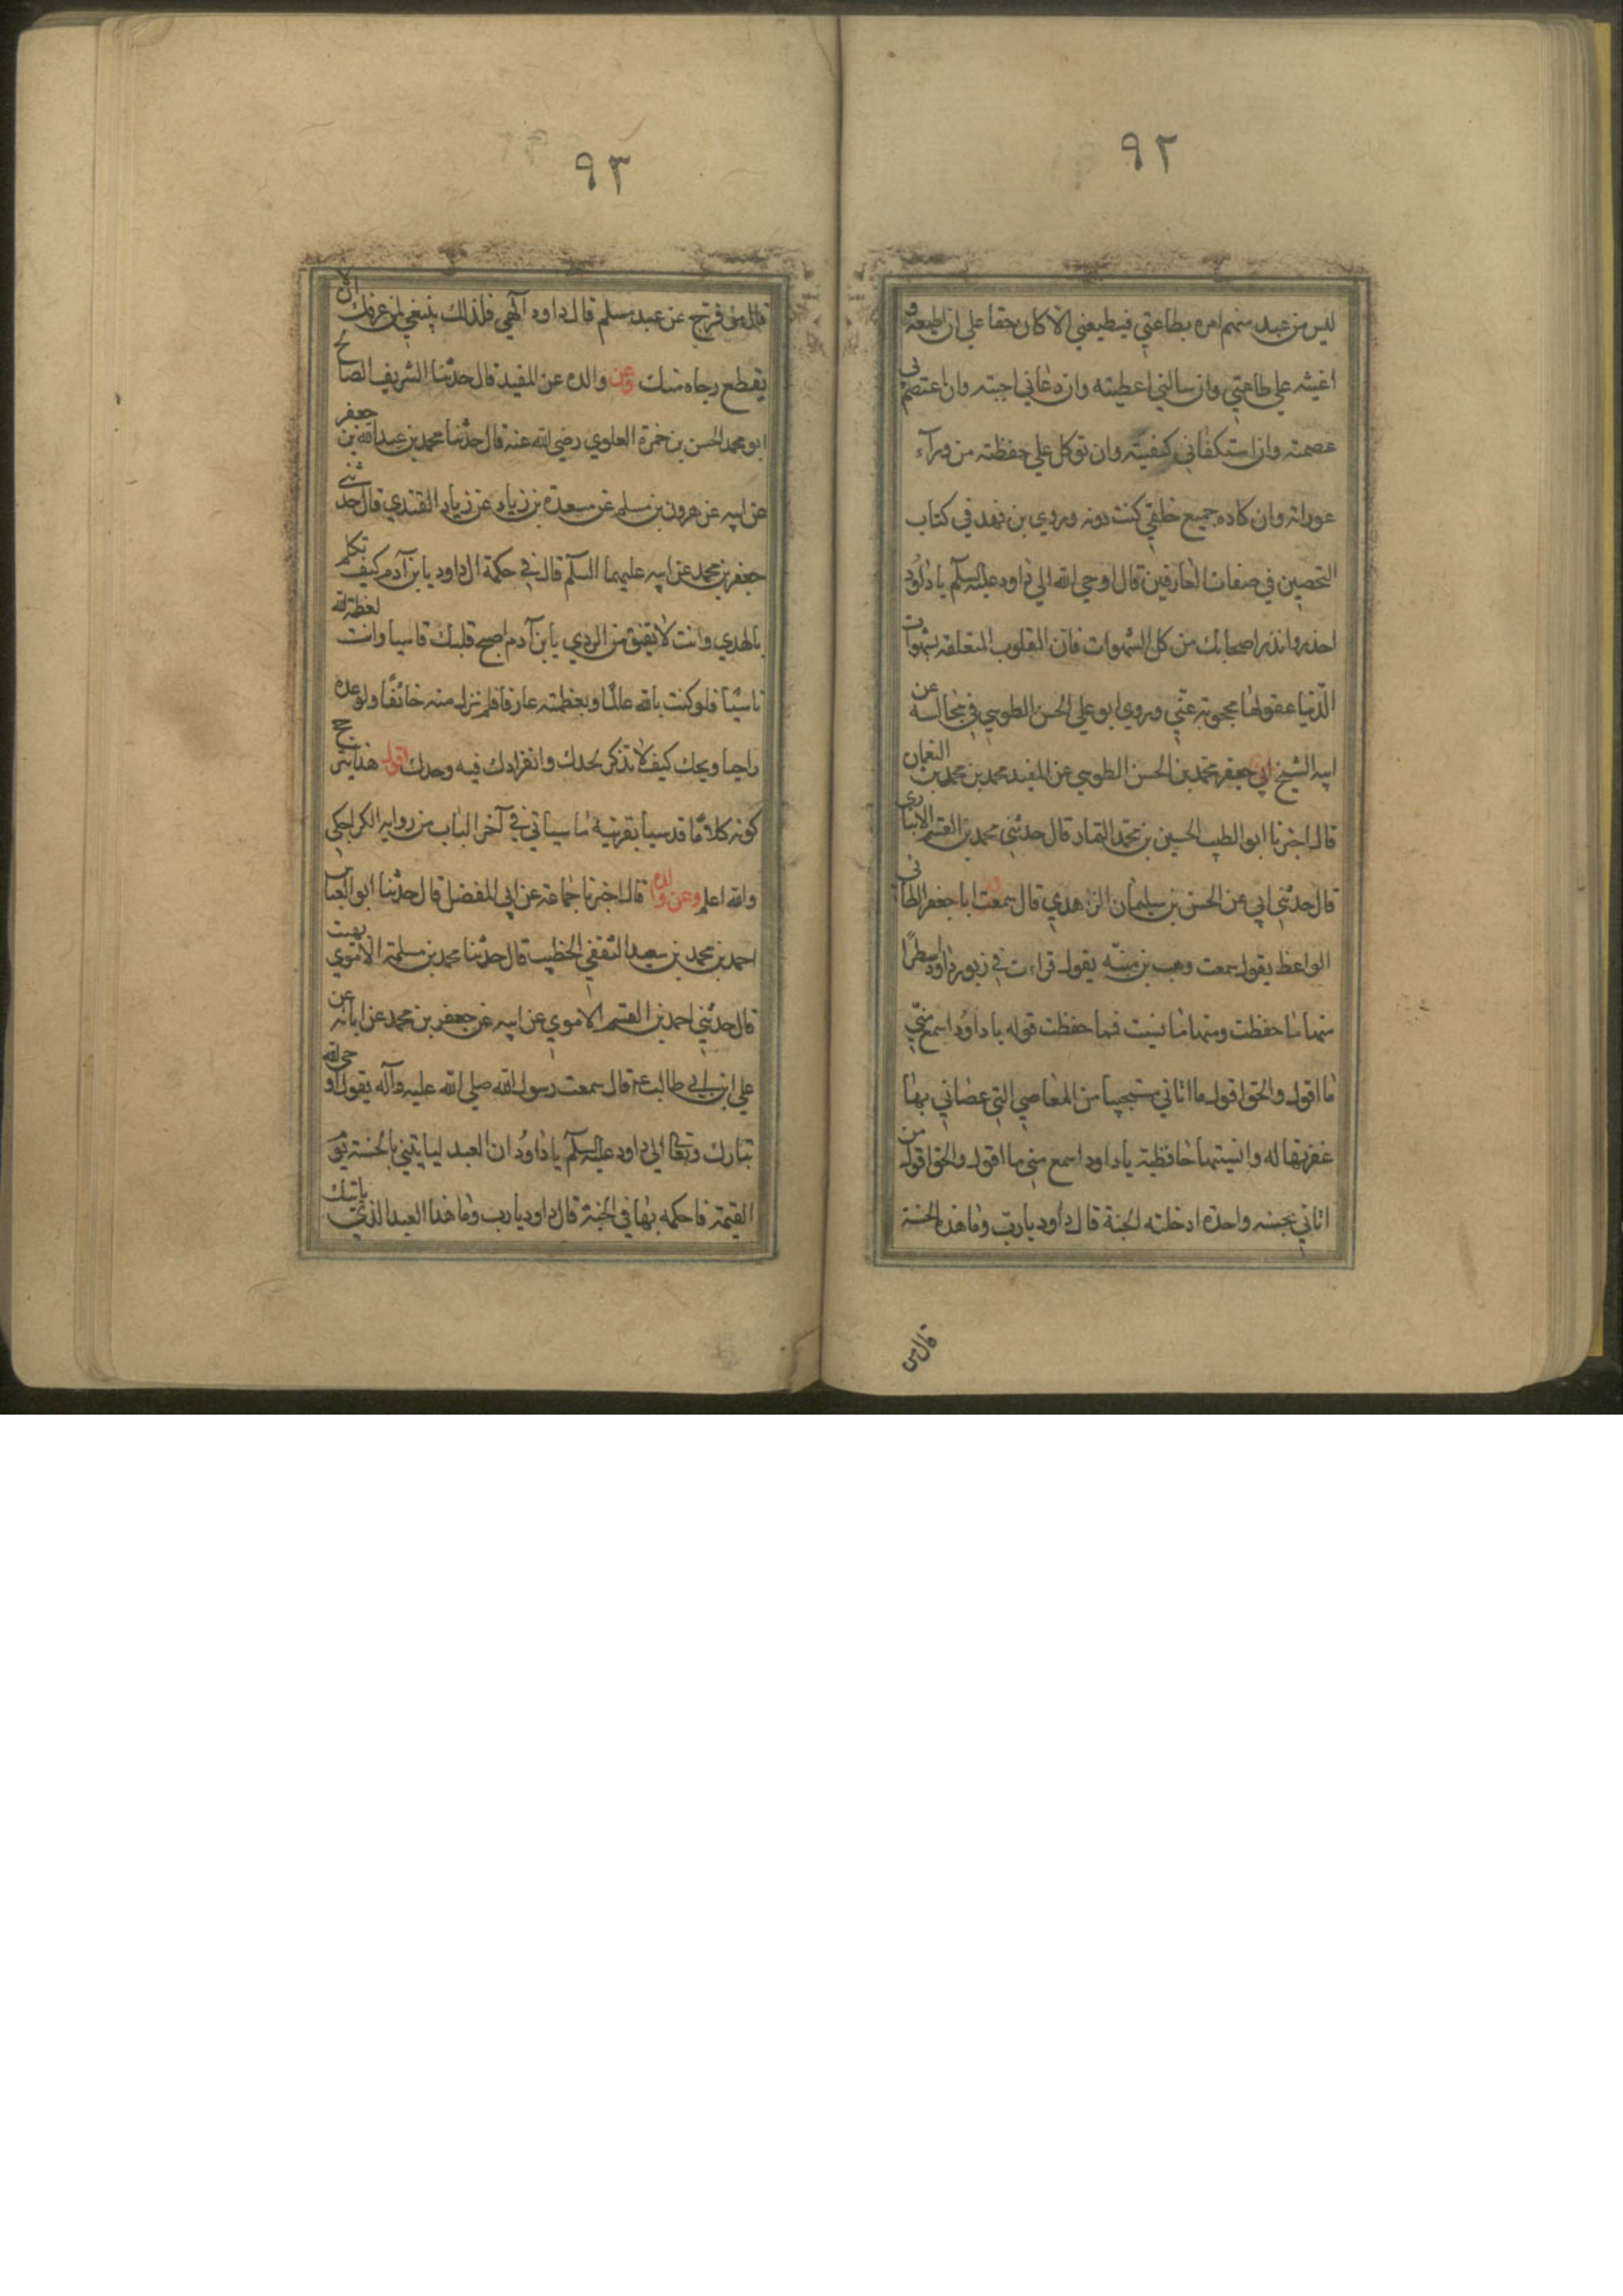 ٩٢
ليس من عبد منهم امره بطاعتي فيطيعني الا كان حقا علي ان اطيعه و
اعينه علي طاعتي وان سالني اعطيته وان دعاني اجبته وان اعتصم بي
عصمته وان استكفاني كفيته وان توكل علي حفظته من ورآء
عوراته وان كاده جميع خلقي كنت دونه وروي بن فهد في كتاب
التحصين في صفات العارفين قال اوحي الله الي داود عليه السلام يا داود
احذر وانذر اصحابك من كل الشهوات فان القلوب المتعلقه بشهوات
الدنيا عقولها محجوبة عني وروي ابو علي الحسن الطوسي في مجالسه عن
ابيه الشيخ ابي جعفر محمد بن الحسن الطوسي عن المفيد محمد بن محمد بن النعمان
قال اخبرنا ابو الطيب الحسين بن محمد التمار قال حدثني محمد بن القسم الانباري
قال حدثني ابي عن الحسن بن سليمان الزاهدي قال سمعت ابا جعفر الطائي
الواعظ يقول سمعت وهب بن منبه يقول قراءت في زبور داود اسطرًا
منها ما حفظت ومنها ما نسيت فما حفظت قوله يا داود اسمع مني
ما اقول والحق اقول ما اتاني مستحييا من المعاصي التي عصاني بها
غفرتها له وانسيتها حافظيه يا داود اسمع مني ما اقول والحق اقول من
اتاني بحسنه واحدة ادخلته الجنة قال داود يا رب وما هذه الحسنة
قال من
٩٣
قال من فرج عن عبد مسلم قال داود آلهي فلذلك ينبغي لمن عرفك ان لا
يقطع رجاه منك وعن والده عن المفيد قال حدثنا الشريف الصالح
ابو محمد الحسن بن حمزة العلوي رضي الله عنه قال حدثنا محمد بن عبد الله بن جعفر
عن ابيه عن هرون بن مسلم عن مسعدة بن زياد عن زياد القندي قال حدثني
جعفر بن محمد عن ابيه عليهما السلم قال في حكمة ال داود يا بن آدم كيف تكلم
بالهدي وانت لا تفيق من الردي يا بن آدم اصبح قلبك قاسيا وانت لعظمة الله
ناسيًا فلو كنت بالله عالمًا وبعظمته عارفا فلم تزل منه خائفًا ولوعده
راجيا ويحك كيف لا تذكر لحدك وانفرادك فيه وحدك اقول هذا يترجح
كونه كلامًا قدسيا بقرنية ما سياتي في آخر الباب من رواية الكراجكي
والله اعلم وعن والده قال اخبرنا جماعة عن ابي المفضل قال حدثنا ابو العباس
احمد بن محمد بن سعيد الثقفي الخطيب قال حدثنا محمد بن مسلمة الاموي بهيت
قال حدثني احمد بن القسم الاموي عن ابيه عن جعفر بن محمد عن ابائه عن
علي ابن ابي طالب ع قال سمعت رسول الله صلي الله عليه وآله يقول اوحي الله
تبارك وتعالى الي داود عليه السلام يا داود ان العبد ليايتني بالحسنة يوم
القيمة فاحكمه بها في الجنة قال داود يا رب وما هذا العبد الذي ياتيك